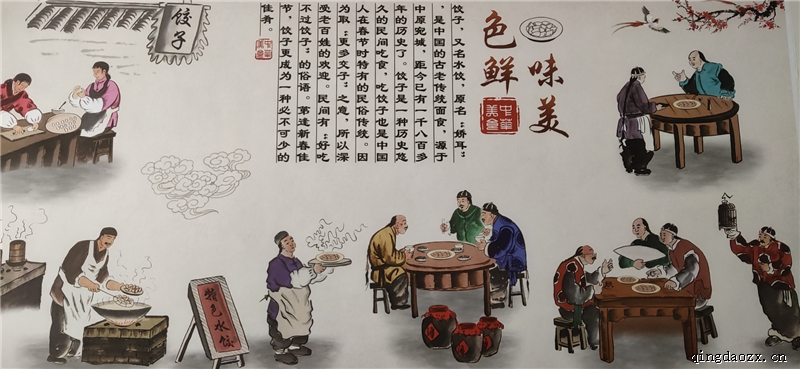 饺子
味美
色鲜
中华美食
饺子，又名水饺，原名"娇耳"
，是中国的古老传统面食，源于
中原宛城，距今已有一千八百多
年的历史了。饺子是一种历史悠
久的民间吃食，吃饺子也是中国
人在春节时特有的民俗传统。因
为取"更多交子"之意，所以深
受老百姓的欢迎。民间有"好吃
不过饺子"的俗语。第逢新春佳
节，饺子更成为一种必不可少的
佳肴。
中华美食
特色水饺
qingdaozx.cn